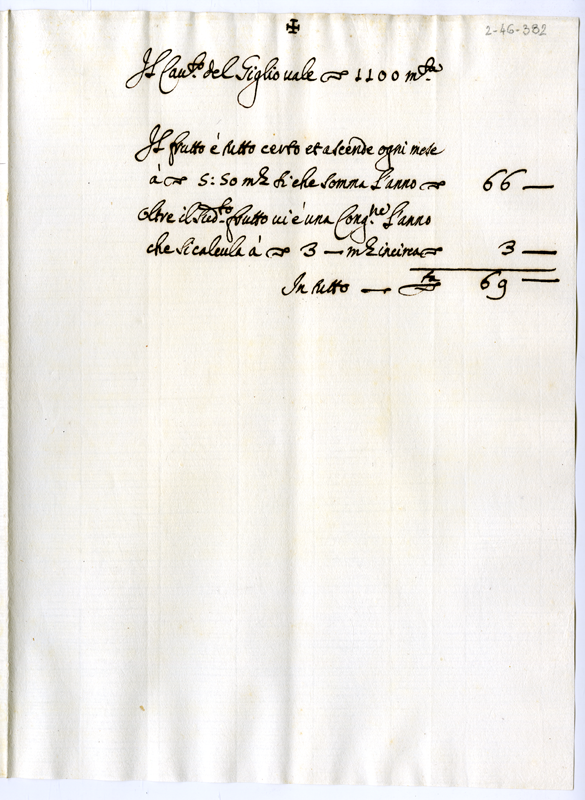 ✠
2-46-382
Il Cau.to del Giglio uale 1100 m.ta
Il frutto é tutto certo et ascende ogni mese
á 5:50 m.ta si che somma l'anno 66 —
oltre il sud.to frutto ui é una Cong.ne l'anno
che si calcula á 3 — m.ta incirca 3 —
In tutto — 69 —